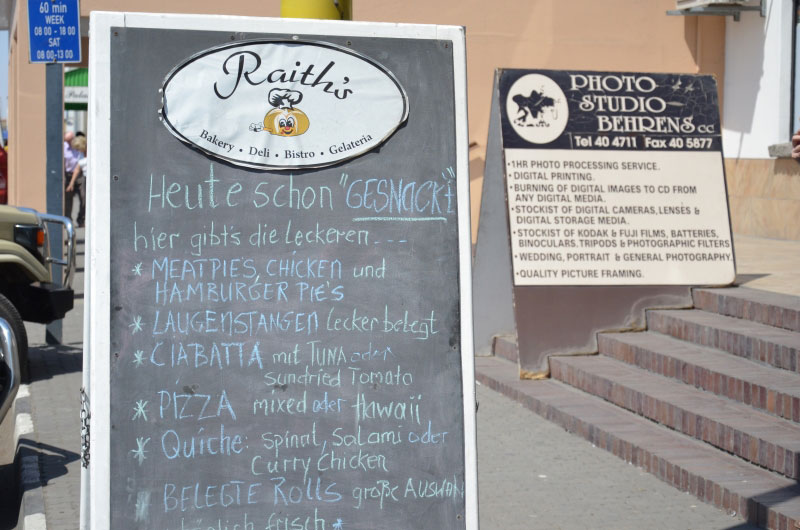 60 min
WEEK
08 00 - 18 00
SAT
08 00-13 00
Raith's
Bakery • Deli • Bistro • Gelateria
Heute schon "GESNACKT"
hier gibt's die Leckeren ---
* MEATPIE'S, CHICKEN und
HAMBURGER PIE'S
* LAUGENSTANGEN lecker belegt
* CIABATTA mit TUNA oder
sundried Tomato
* PIZZA mixed oder Hawaii
* Quiche: spinat, Salami oder
Curry Chicken
* BELEGTE ROLLS große AUSWAHL
täglich frisch *
PHOTO
STUDIO
BEHRENS cc
Tel 40 4711 Fax 40 5877
• 1HR PHOTO PROCESSING SERVICE.
• DIGITAL PRINTING.
• BURNING OF DIGITAL IMAGES TO CD FROM
ANY DIGITAL MEDIA.
• STOCKIST OF DIGITAL CAMERAS, LENSES &
DIGITAL STORAGE MEDIA.
• STOCKIST OF KODAK & FUJI FILMS, BATTERIES,
BINOCULARS. TRIPODS & PHOTOGRAPHIC FILTERS
• WEDDING, PORTRAIT & GENERAL PHOTOGRAPHY.
• QUALITY PICTURE FRAMING.